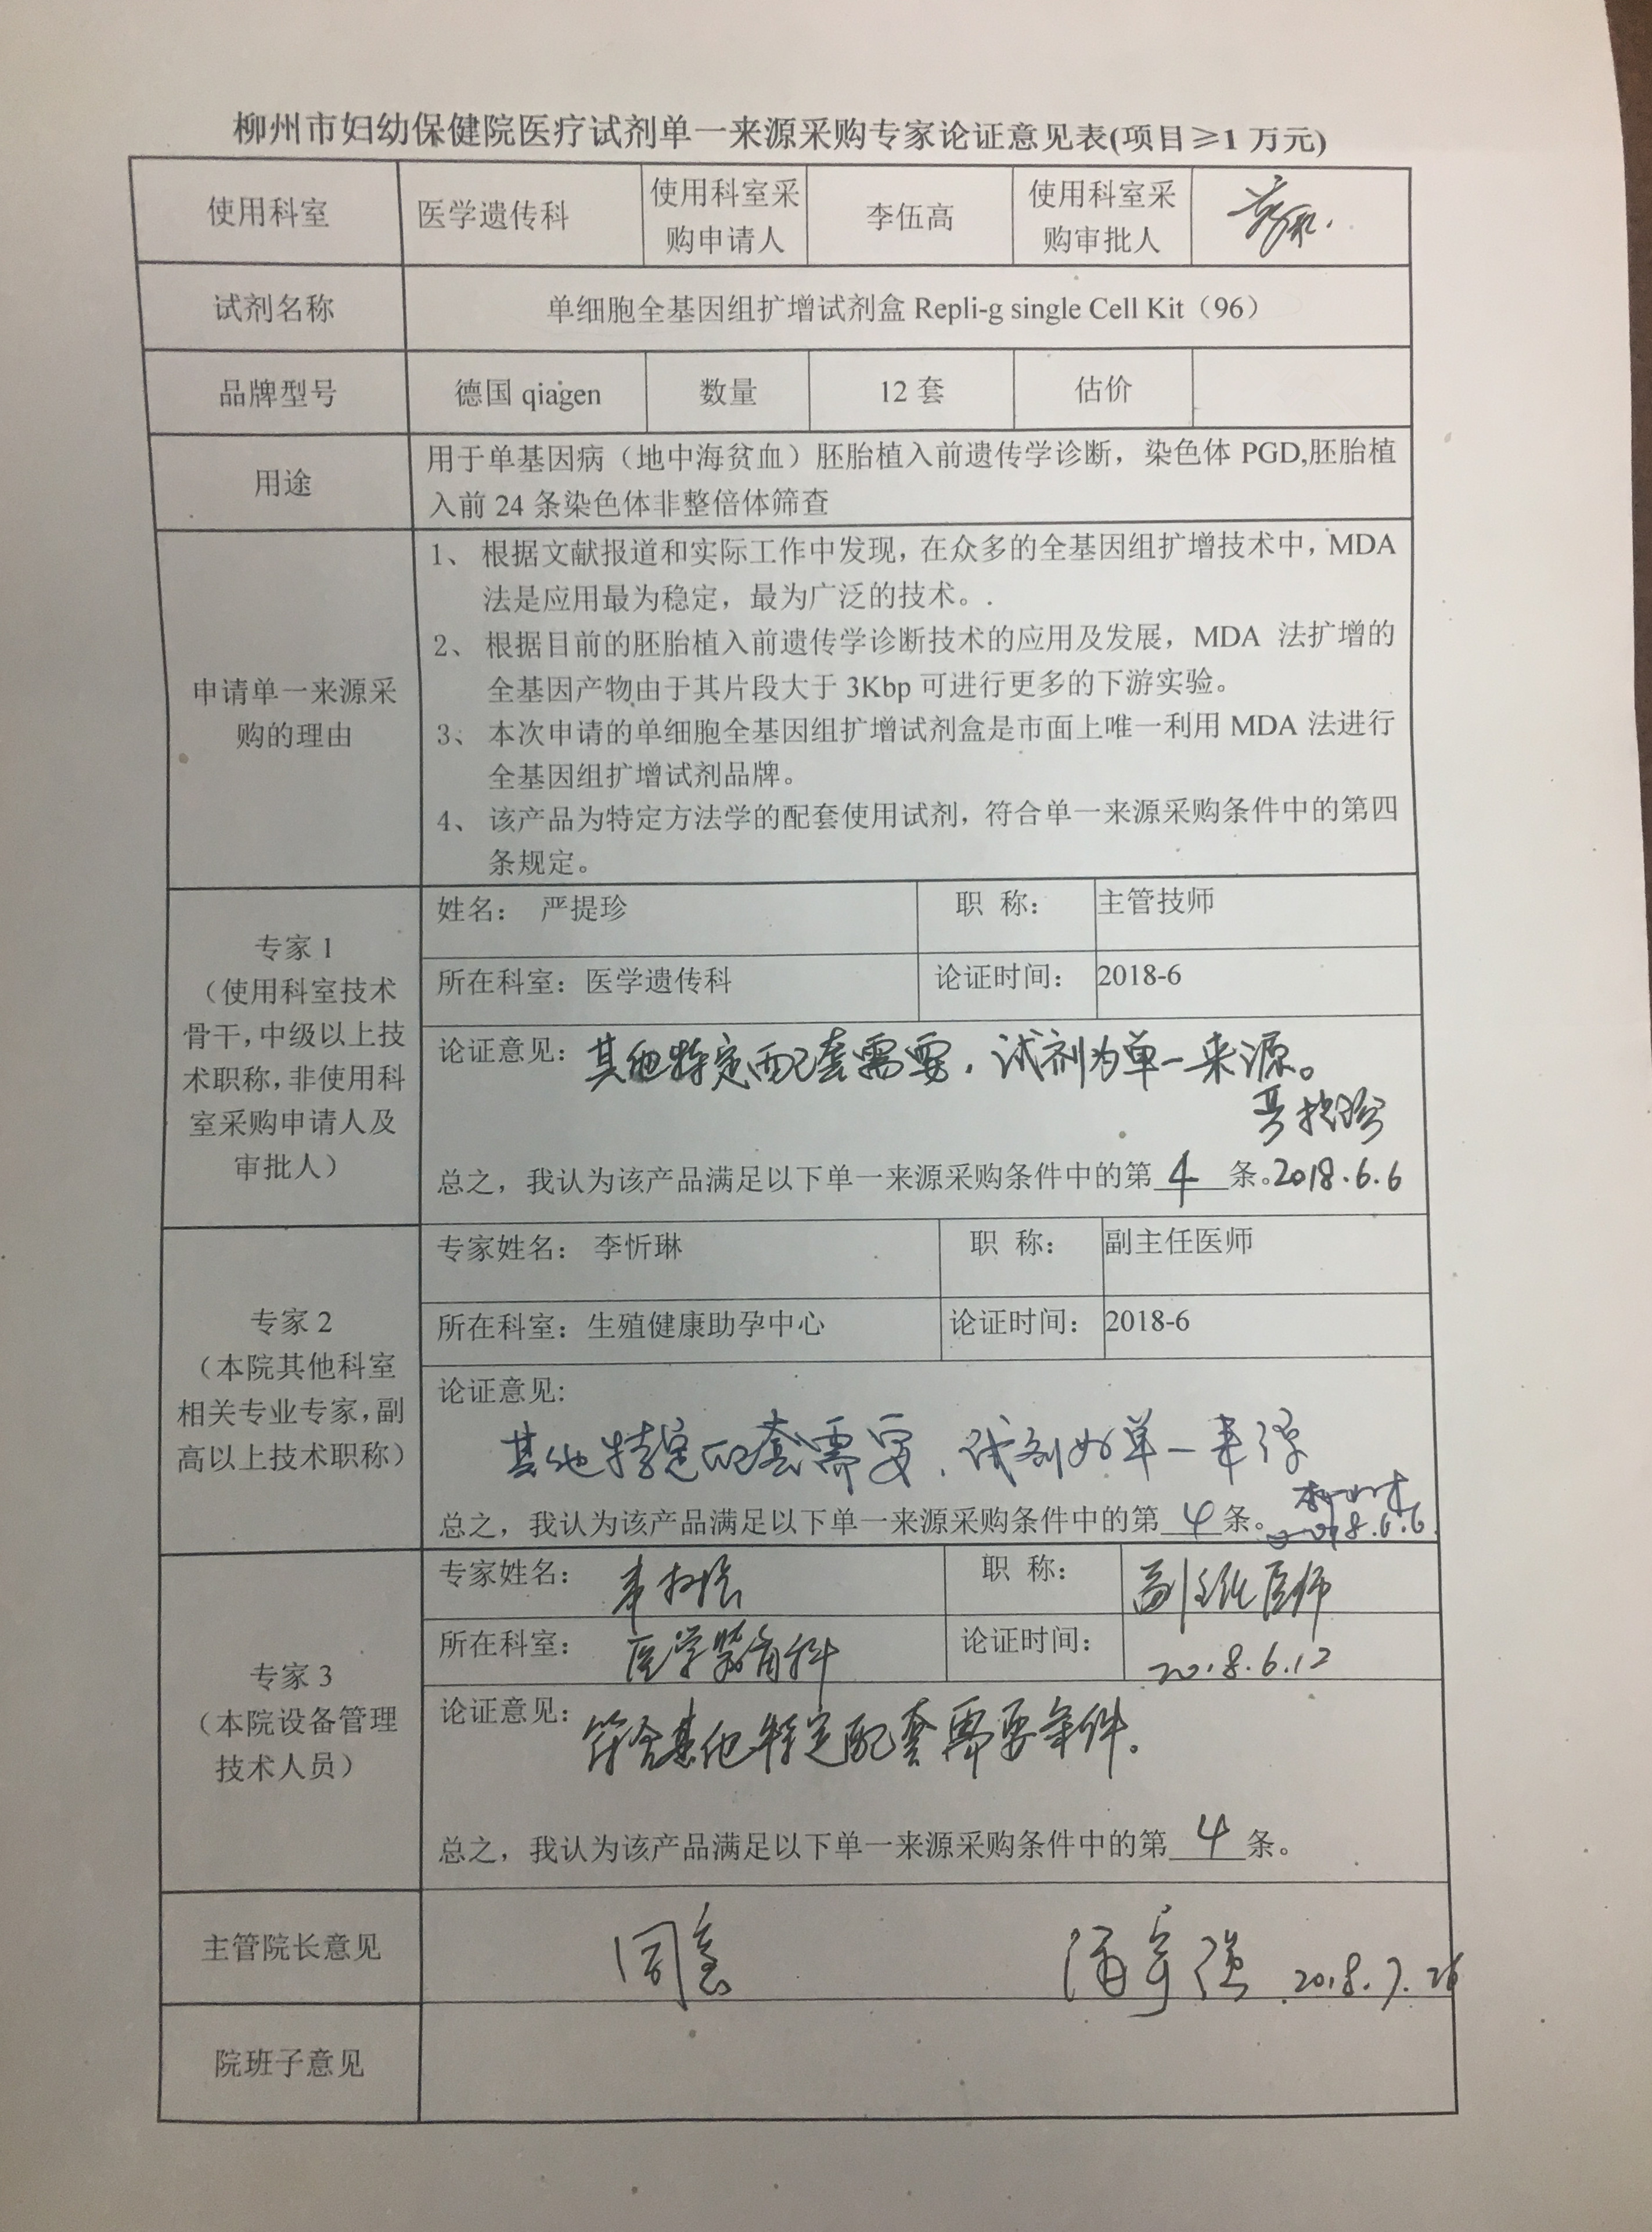 柳州市妇幼保健院医疗试剂单一来源采购专家论证意见表(项目≥1 万元)
使用科室 医学遗传科 使用科室采购申请人 李伍高 使用科室采购审批人
试剂名称 单细胞全基因组扩增试剂盒 Repli-g single Cell Kit（96）
品牌型号 德国 qiagen 数量 12 套 估价
用途
用于单基因病（地中海贫血）胚胎植入前遗传学诊断，染色体 PGD,胚胎植
入前 24 条染色体非整倍体筛查
申请单一来源采
购的理由
1、 根据文献报道和实际工作中发现，在众多的全基因组扩增技术中，MDA
法是应用最为稳定，最为广泛的技术。.
2、 根据目前的胚胎植入前遗传学诊断技术的应用及发展，MDA 法扩增的
全基因产物由于其片段大于 3Kbp 可进行更多的下游实验。
3、 本次申请的单细胞全基因组扩增试剂盒是市面上唯一利用 MDA 法进行
全基因组扩增试剂品牌。
4、 该产品为特定方法学的配套使用试剂，符合单一来源采购条件中的第四
条规定。
专家 1
（使用科室技术
骨干，中级以上技
术职称，非使用科
室采购申请人及
审批人）
姓名： 严提珍 职 称： 主管技师
所在科室：医学遗传科 论证时间： 2018-6
论证意见：其他特定配套需要，试剂为单一来源。
严提珍
总之，我认为该产品满足以下单一来源采购条件中的第 4 条。2018.6.6
专家 2
（本院其他科室
相关专业专家，副
高以上技术职称）
专家姓名： 李忻琳 职 称： 副主任医师
所在科室：生殖健康助孕中心 论证时间： 2018-6
论证意见:
其他特定配套需要，试剂为单一来源
总之，我认为该产品满足以下单一来源采购条件中的第 4 条。 2018.6.6
专家 3
（本院设备管理
技术人员）
专家姓名： 职 称： 副主任医师
所在科室： 医学装备科 论证时间： 2018.6.12
论证意见：符合其他特定配套需要条件。
总之，我认为该产品满足以下单一来源采购条件中的第 4 条。
主管院长意见 同意 2018.7.26
院班子意见